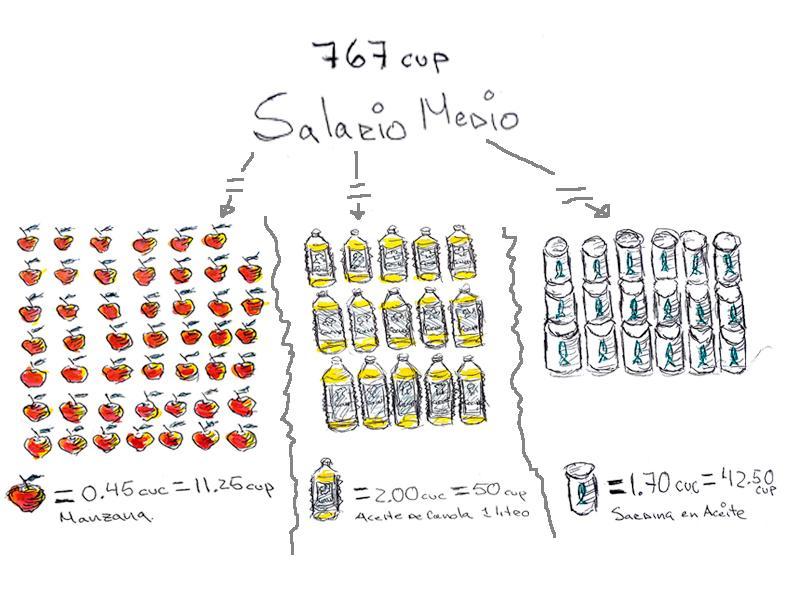 767 cup
Salario Medio
= 0.45 cuc = 11.25 cup
Manzana.
= 2.00 cuc = 50 cup
Aceite de Canola 1 litro
= 1.70 cuc = 42.50 cup
Sardina en Aceite